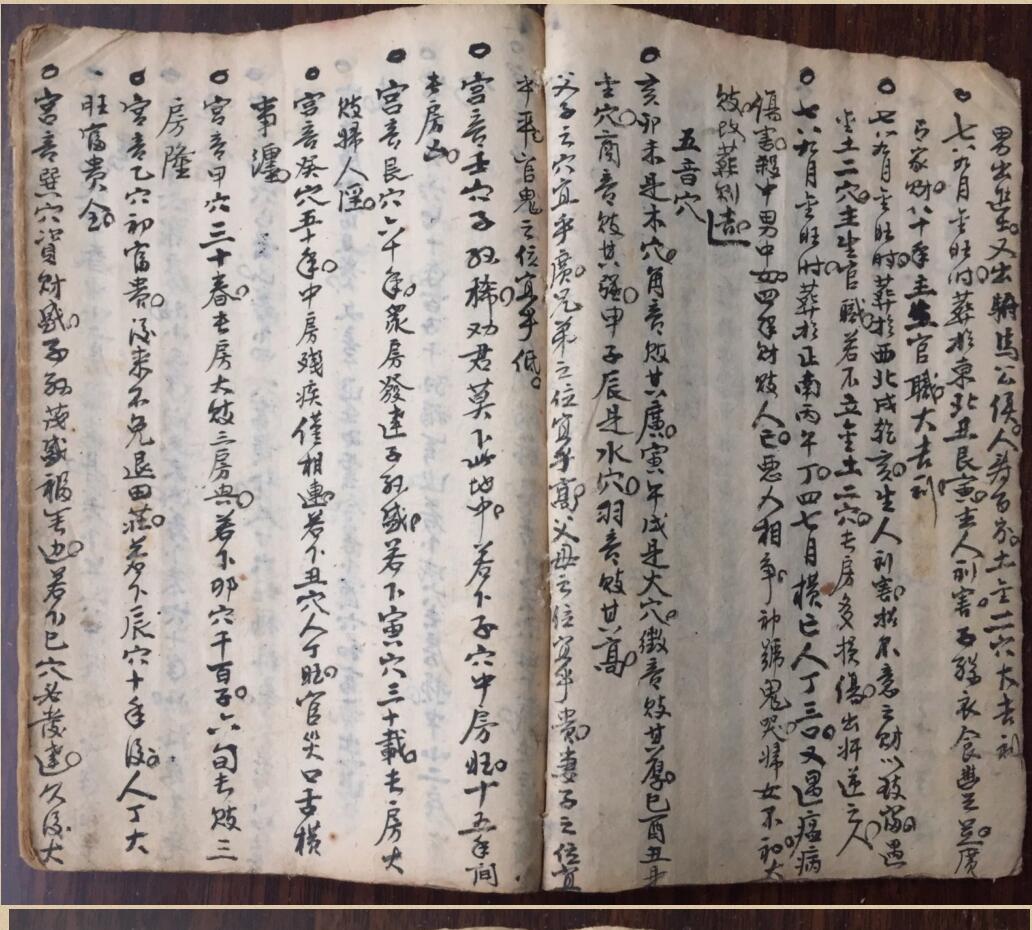 男出進 又出駙馬公侯 人壽百 土金二穴大吉利
七八九月金旺时葬於東北丑艮寅主人利害 子孫衣食豐足 足廣
家财 八十年主生官職大吉利
七八九月金旺时葬於西北戌乾亥生人利害 招不意之财以致富遇
金土二穴主生官職若不立金土二穴长房多損傷出奸逆之人
七八九月金旺时葬於正南丙午丁四七月横亡人丁三口又遇瘟病
傷害殺中男中女四年 财敗人亡 惡人相争 神號鬼哭 婦女不和大
敗改葬则吉
五音穴
亥卯未是木穴角音敗其廣寅午戌是火穴徵音敗其厚巳酉丑是
金穴商音敗其强申子辰是水穴羽音敗其高
父子之穴宜乎廣兄弟之位宜乎高父母之位宜乎貴妻子之位宜
乎平官鬼之位宜乎低
宫音壬穴子孫稀劝君莫下此地中若下子穴中房旺十五年间
长房凶
宫音艮穴六千年衆房發達子孫盛若下寅穴三十載长房大
敗婦人淫
宫音癸穴五十年中房殘疾僅相連若下丑穴人丁旺官災口舌横
事瀍
宫音甲穴三十春长房大敗三房興若下卯穴千百子六旬长敗三
房隆
宫音乙穴初富贵後来不免退田莊若下辰穴十年後人丁大
旺富贵全
宫音巽穴資财盛子孫茂盛福無边若下巳穴必發達久後大